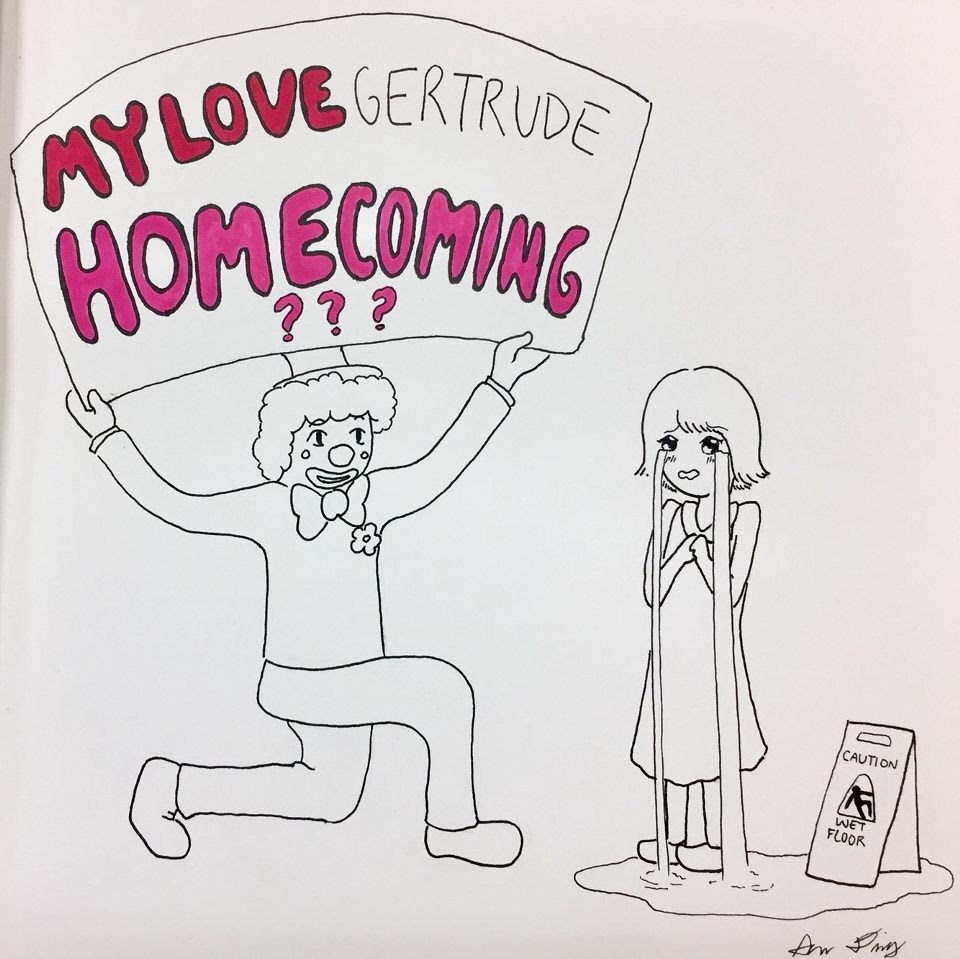 MY LOVE GERTRUDE
HOMECOMING
? ? ?
CAUTION
WET
FLOOR